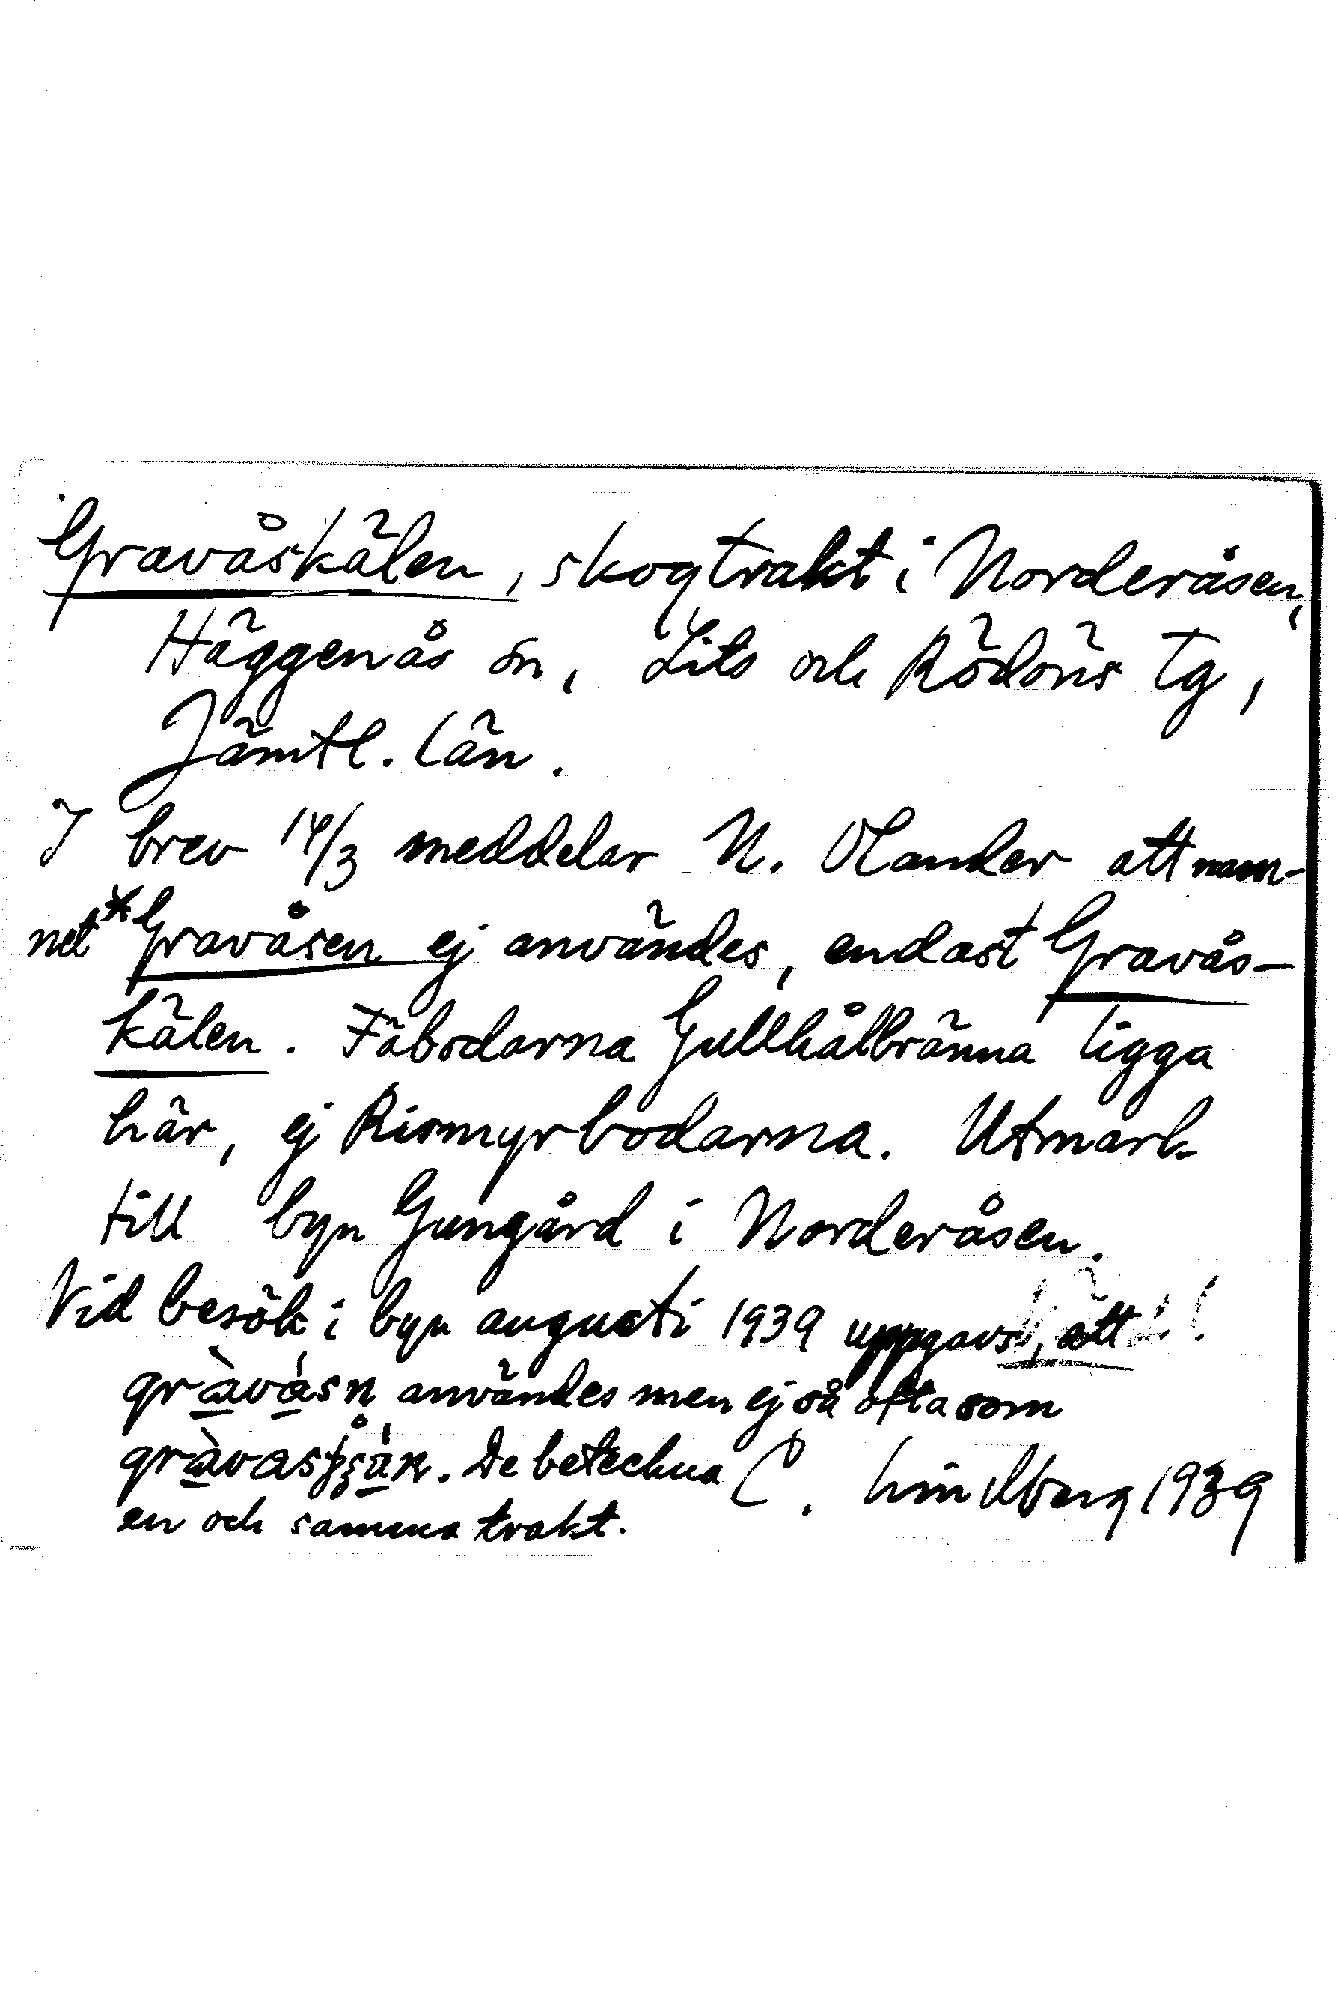 Gravåskälen, skogtrakt i Norderåsen,
Häggenås sn, Lits och Rödöns tg,
Jämtl. län.
I brev 14/3 meddelar N. Olander att nam-
net *Gravåsen ej användes, endast Gravås-
kälen. Fäbodarna Gullhålbränna ligga
här, ej Rismyrbodarna. Utmark
till byn Gungård i Norderåsen.
Vid besök i byn augusti 1939 uppgavs, att
användes men ej så ofta som
De beteckna C. Lindberg 1939
en och samma trakt.